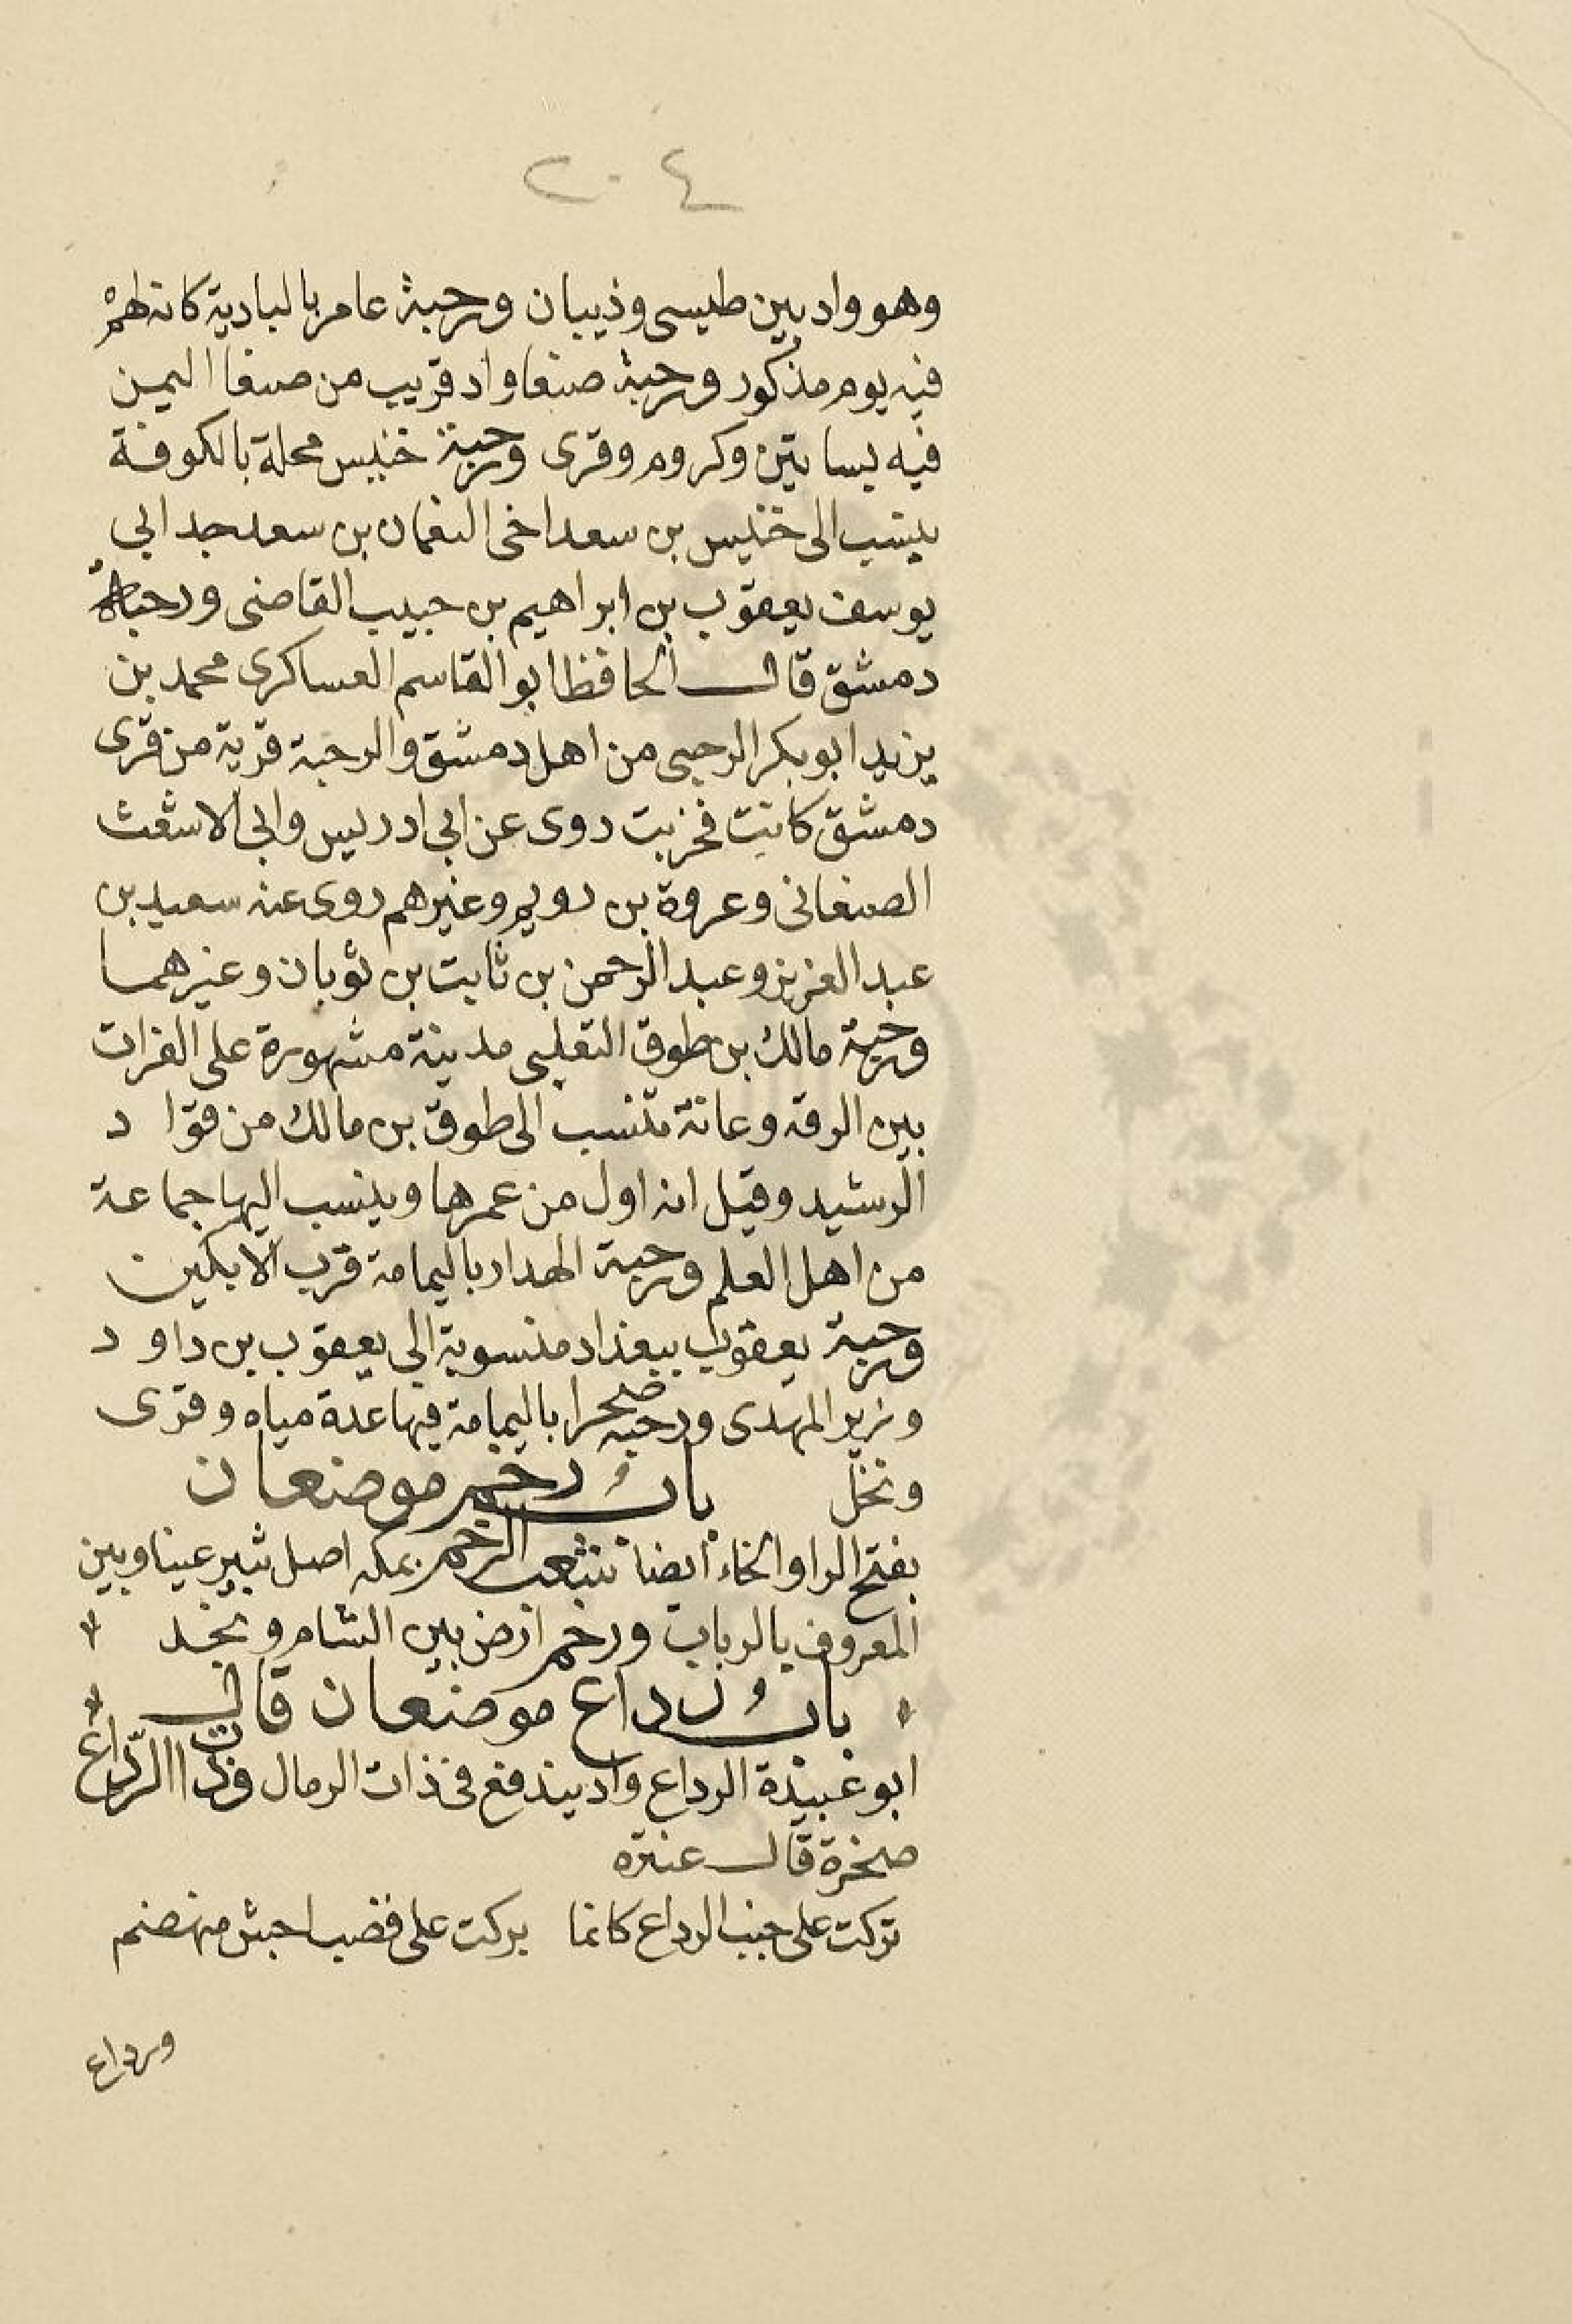 ٢٠٤
وهو واد بين طيسى وذيبان ورحبة عامر بالبادية كان لهم
فيه يوم مذكور ورحبة صنعا واد قريب من صنعا اليمن
فيه بساتين وكروم وقرى ورحبة خنيس محلة بالكوفة
ينسب الى خنيس بن سعد اخى النعمان بن سعد جد ابي
يوسف يعقوب بن ابراهيم بن حبيب القاضى ورحباة
دمشق قال الحافظ ابو القاسم العساكرى محمد بن
يزيد ابو بكر الرحبى من اهل دمشق والرحبة قرية من قرى
دمشق كانت فخربت روى عن ابي ادريس وابي الاشعث
الصنعانى وعروة بن رويم وغيرهم روى عنه سعيد بن
عبد العزيز وعبد الرحمن بن ثابت بن ثوبان وغيرهما
ورحبة مالك بن طوق التغلبى مدينة مشهورة على الفرات
بين الرقه وعانة تنسب الى طوق بن مالك من قواد
الرشيد وقيل انه اول من عمرها وينسب اليها جماعة
من اهل العلم ورحبة الهدار باليمامة قرب الابكين
ورحبة يعقوب ببغداد منسوبة الى يعقوب بن داود
وزير المهدى ورحبه صحرا باليمامة فيها عدة مياه وقرى
ونخل باب رخم موضعان
بفتح الرا والخاء ايضا شعب الرخم بمكه اصل ثبير عينا وبين
المعروف بالرباب ورخم ارض بين الشام ونجد
باب رداع موضعان قال
ابو عبيدة الرداع واد يندفع فى ذات الرمال وذات الرداع
صخرة قال عنتره
تركت على جنب الرداع كانما بركت على قضب اجش مهضم
ورداع